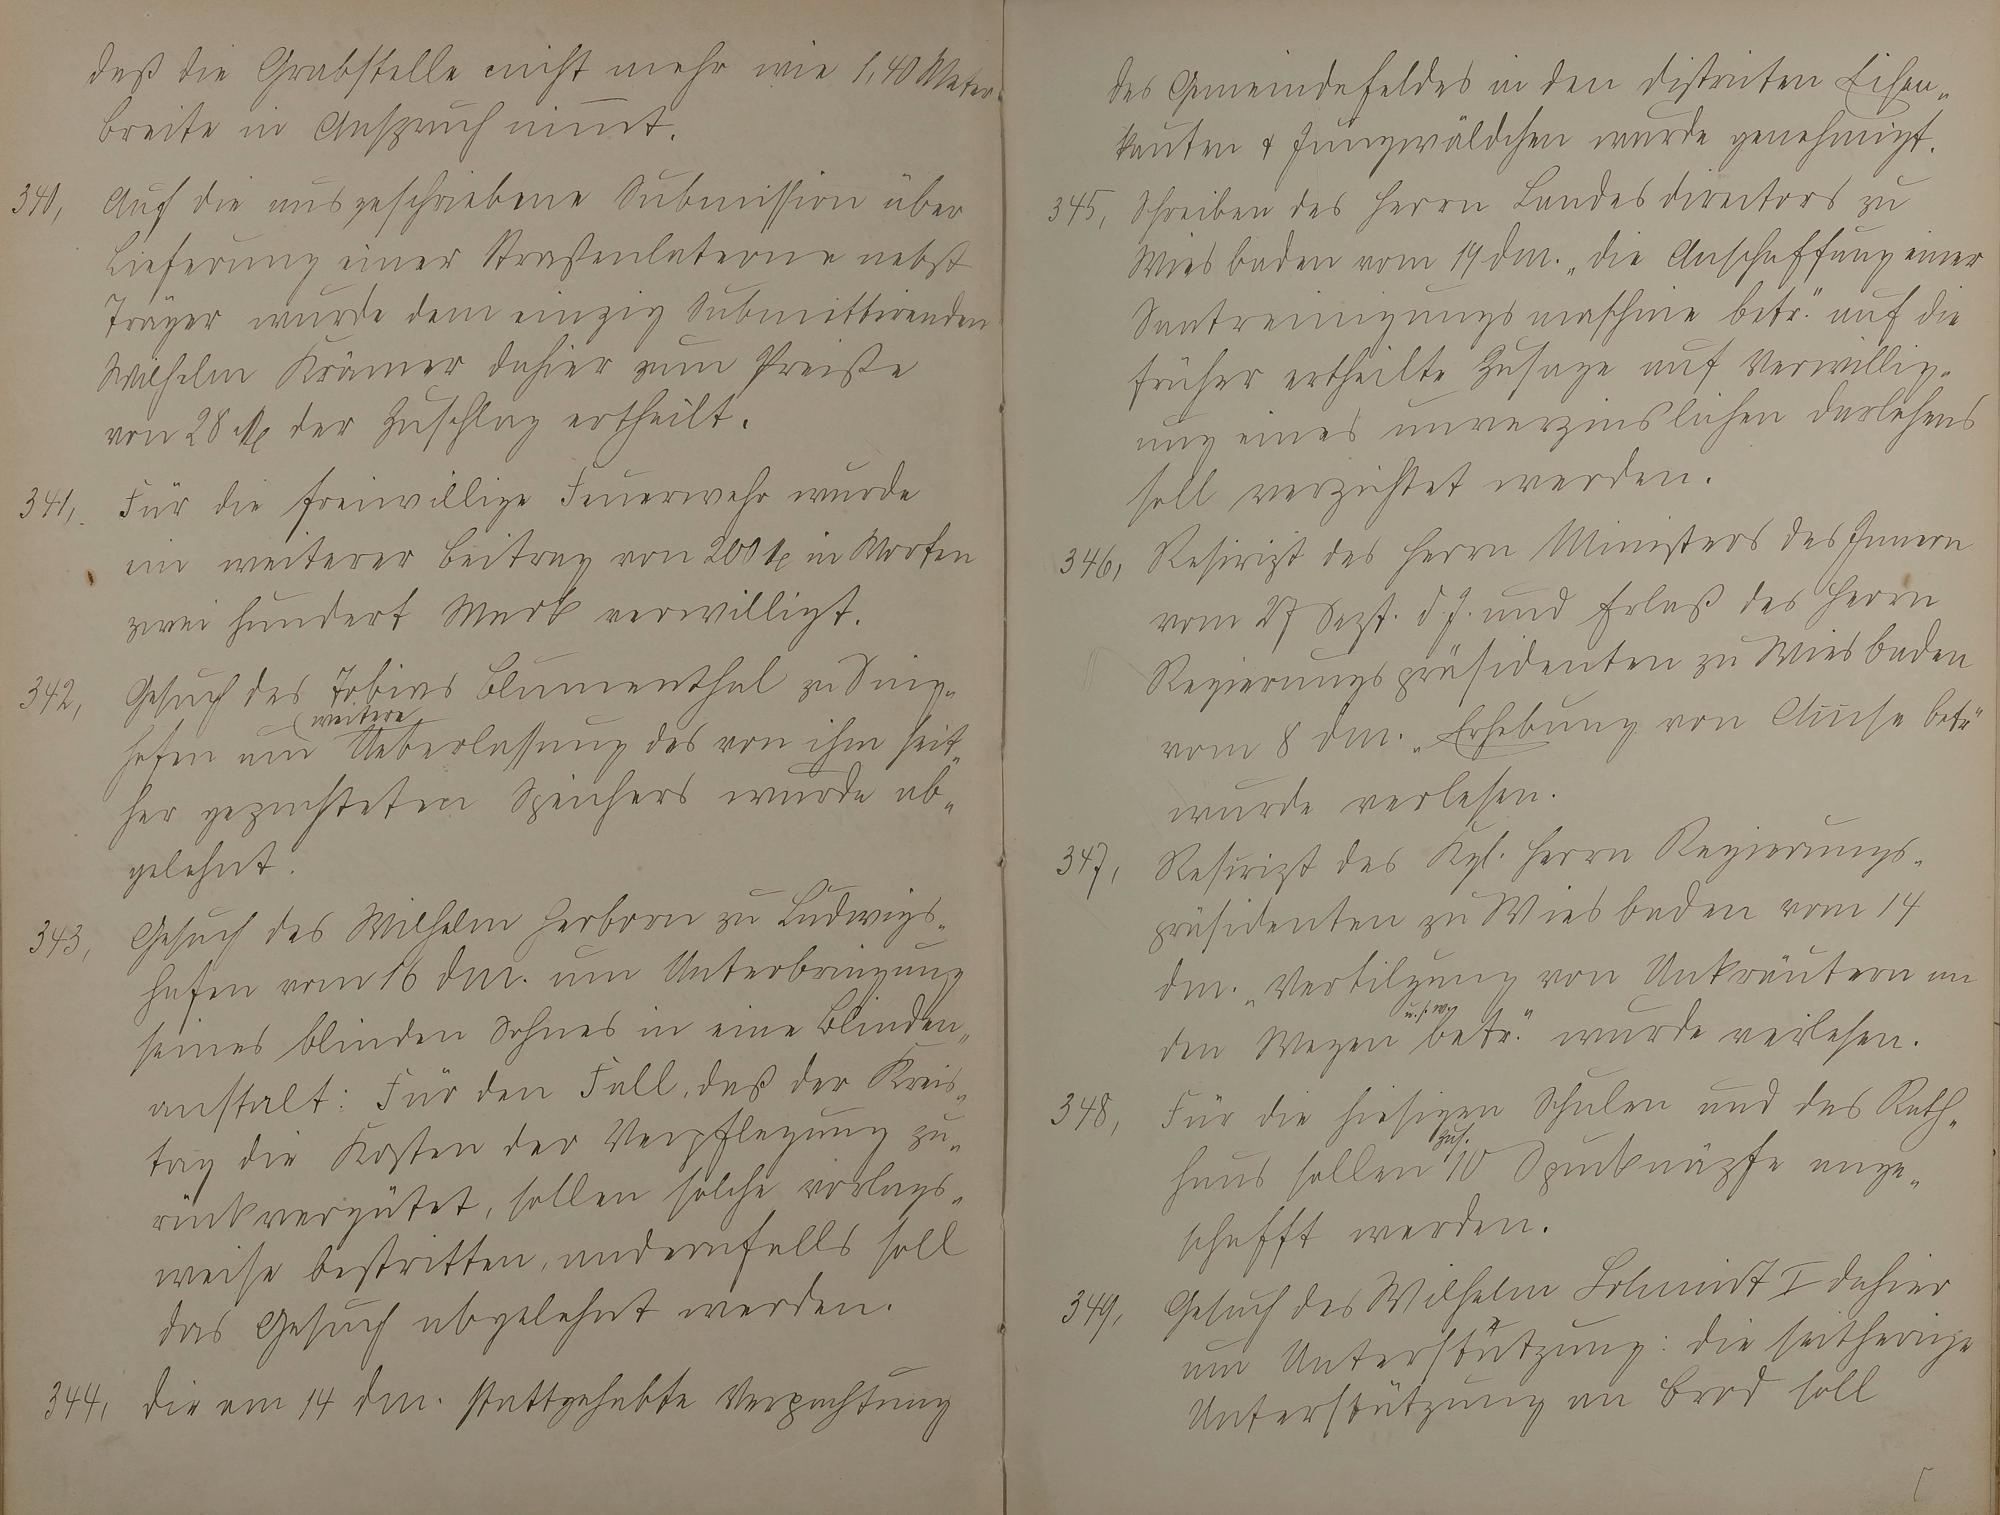 daß die Grabstelle nicht mehr wie 1,40 Meter
Breite in Anspruch nimmt.
340, Auf die ausgeschriebene Submission über
Lieferung einer Straßenlaterne nebst
Träger wurde dem einzig Submittirenden
Wilhelm Krämer dahier zum Preiße
von 28 M der Zuschlag ertheilt.
341, Für die freiwillige Feuerwehr wurde
ein weiterer Beitrag von 200 M in Worten
zwei hundert Mark verwilligt.
342, Gesuch des Tobias Blumenthal zu Sing-
hofen um weitere Ueberlassung des von ihm seit-
her gepachteten Speichers wurde ab-
gelehnt.
343, Gesuch des Wilhelm Herborn zu Ludwigs-
hafen vom 16 dM. um Unterbringung
seines blinden Sohnes in eine Blinden-
anstalt: Für den Fall, daß der Kreis-
tag die Kosten der Verpflegung zu-
rückvergütet, sollen solche vorlags-
weise bestritten, andernfalls soll
das Gesuch abgelehnt werden.
344, Die am 14 dM. stattgehabte Verpachtung
des Gemeindefeldes in den Distrikten Eisen-
kauten & Jungwäldchen wurde genehmigt.
345, Schreiben des Herrn Landesdirectors zu
Wiesbaden vom 14 dM. „die Anschaffung einer
Saatreinigungsmaschine betr." auf die
früher ertheilte Zusage auf Verwillig-
ung eines unverzinslichen Darlehens
soll verzichtet werden.
346, Rescript des Herrn Ministers des Innern
vom 27 Sept. d. J. und Erlaß des Herrn
Regierungspräsidenten zu Wiesbaden
vom 8 dM. „Erhebung von Accise betr"
wurde verlesen.
347, Rescript des Kgl. Herrn Regierungs-
präsidenten zu Wiesbaden vom 14
dM. „Vertilgung von Unkräutern an
den Wegen u.s.w. betr." wurde verlesen.
348, Für die hiesigen Schulen und das Rath-
haus sollen zus. 10 Spucknäpfe ange-
schafft werden.
349, Gesuch des Wilhelm Schmidt I dahier
um Unterstützung: die seitherige
Unterstützung an Brod soll